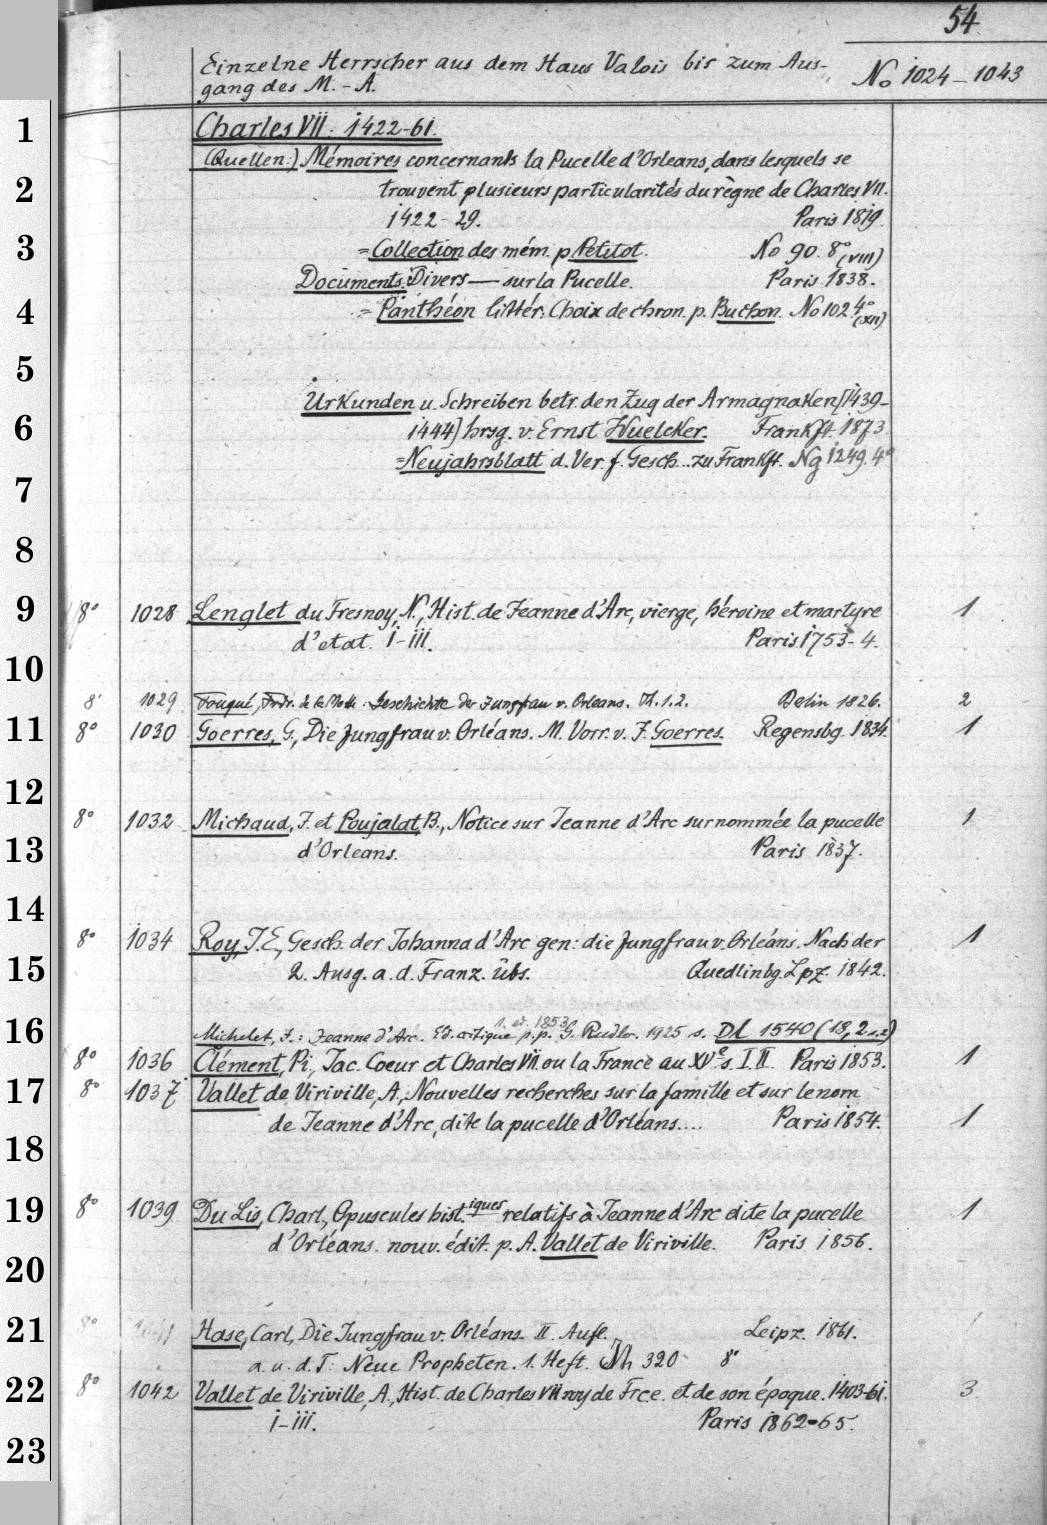 54
Einzelne Herrscher aus dem Haus Valois bis zum Aus-
gang des M.-A.
No 1024-1043
1
Charles VII. 1422-61.
(Quellen:) Mémoires concernants la Pucelle d'Orleans, dans lesquels se
2
trouvent plusieurs particularités du règne de Charles VII.
1422-29. Paris 1819.
3
= Collection des mém. p. Petitot. No 90. 8° (VIII)
Documents Divers — sur la Pucelle. Paris 1838.
4
= Panthéon littér. Choix de chron. p. Buchon. No 102 4° (XII)
5
Urkunden u. Schreiben betr. den Zug der Armagnaken [1439-
6
1444] hrsg. v. Ernst Wuelcker. Frankft. 1873.
= Neujahrsblatt d. Ver. f. Gesch... zu Frankft. Ng 1249. 4°
7
8
9
8° 1028 Lenglet du Fresnoy, N., Hist. de Jeanne d'Arc, vierge, héroine et martyre 1
d'etat. I-III. Paris 1753-4.
10
8° 1029 Fouqué, Frdr. de la Motte: Geschichte der Jungfrau v. Orleans. Th. 1.2. Berlin 1826. 2
11
8° 1030 Goerres, G., Die Jungfrau v. Orléans. M. Vorr. v. J. Goerres. Regensbg. 1834. 1
12
8° 1032 Michaud, J. et Poujalat, B., Notice sur Jeanne d'Arc surnommée la pucelle 1
13
d'Orleans. Paris 1837.
14
8° 1034 Roy, J. E., Gesch. der Johanna d'Arc gen: die Jungfrau v. Orléans. Nach der 1
15
2. Ausg. a. d. Franz. übs. Quedlinbg. Lpz. 1842.
16
1. et. 1853
Michelet, J.: Jeanne d'Arc. Ed. critique p. p. G. Rudler. 1925 s. Dl 1540 (18, 2.:2)
8° 1036 Clément, Pi., Jac. Coeur et Charles VII. ou la France au XVe s. I. II. Paris 1853. 1
17
8° 1037 Vallet de Viriville, A., Nouvelles recherches sur la famille et sur le nom
de Jeanne d'Arc, dite la pucelle d'Orléans.... Paris 1854. 1
18
19
8° 1039 Du Lis, Charl., Opuscules hist.iques relatifs à Jeanne d'Arc dite la pucelle 1
d'Orléans. nouv. édit. p. A. Vallet de Viriville. Paris 1856.
20
21
8° 1041 Hase, Carl, Die Jungfrau v. Orléans. II. Aufl. Leipz. 1861. 1
a. u. d. T: Neue Propheten. 1. Heft. Nh 320 8°
22
8° 1042 Vallet de Viriville, A., Hist. de Charles VII roy de Frce. et de son époque. 1403-61. 3
I-III. Paris 1862-65.
23